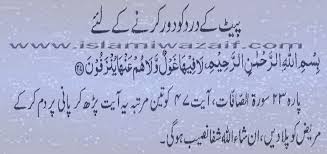 پیٹ کے درد کو دور کرنے کے لئے
www.islamiwazaif.com
بِسْمِ اللّٰهِ الرَّحْمٰنِ الرَّحِيْمِ لَا فِيْهَا غَوْلٌ وَّلَا هُمْ عَنْهَا يُنْزَفُوْنَ
پارہ ۲۳ سورۃ الصّافّات، آیت ۴۷ کو تین مرتبہ یہ آیت پڑھ کر پانی پر دم کر کے
مریض کو پلا دیں، ان شاء اللہ شفا نصیب ہوگی۔